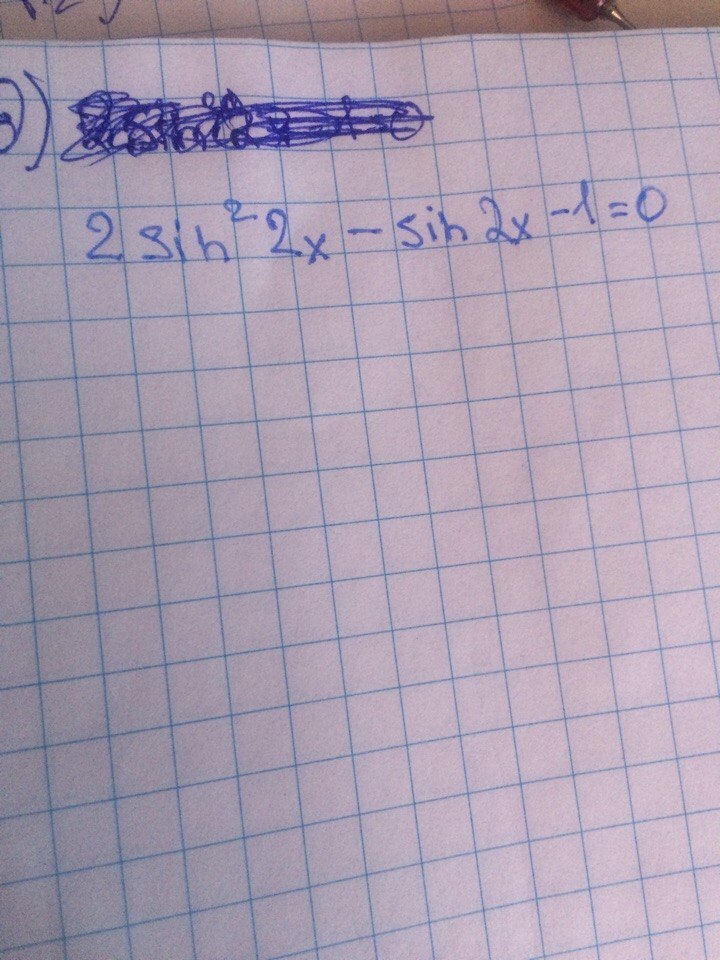 2 sin² 2x - sin 2x - 1 = 0